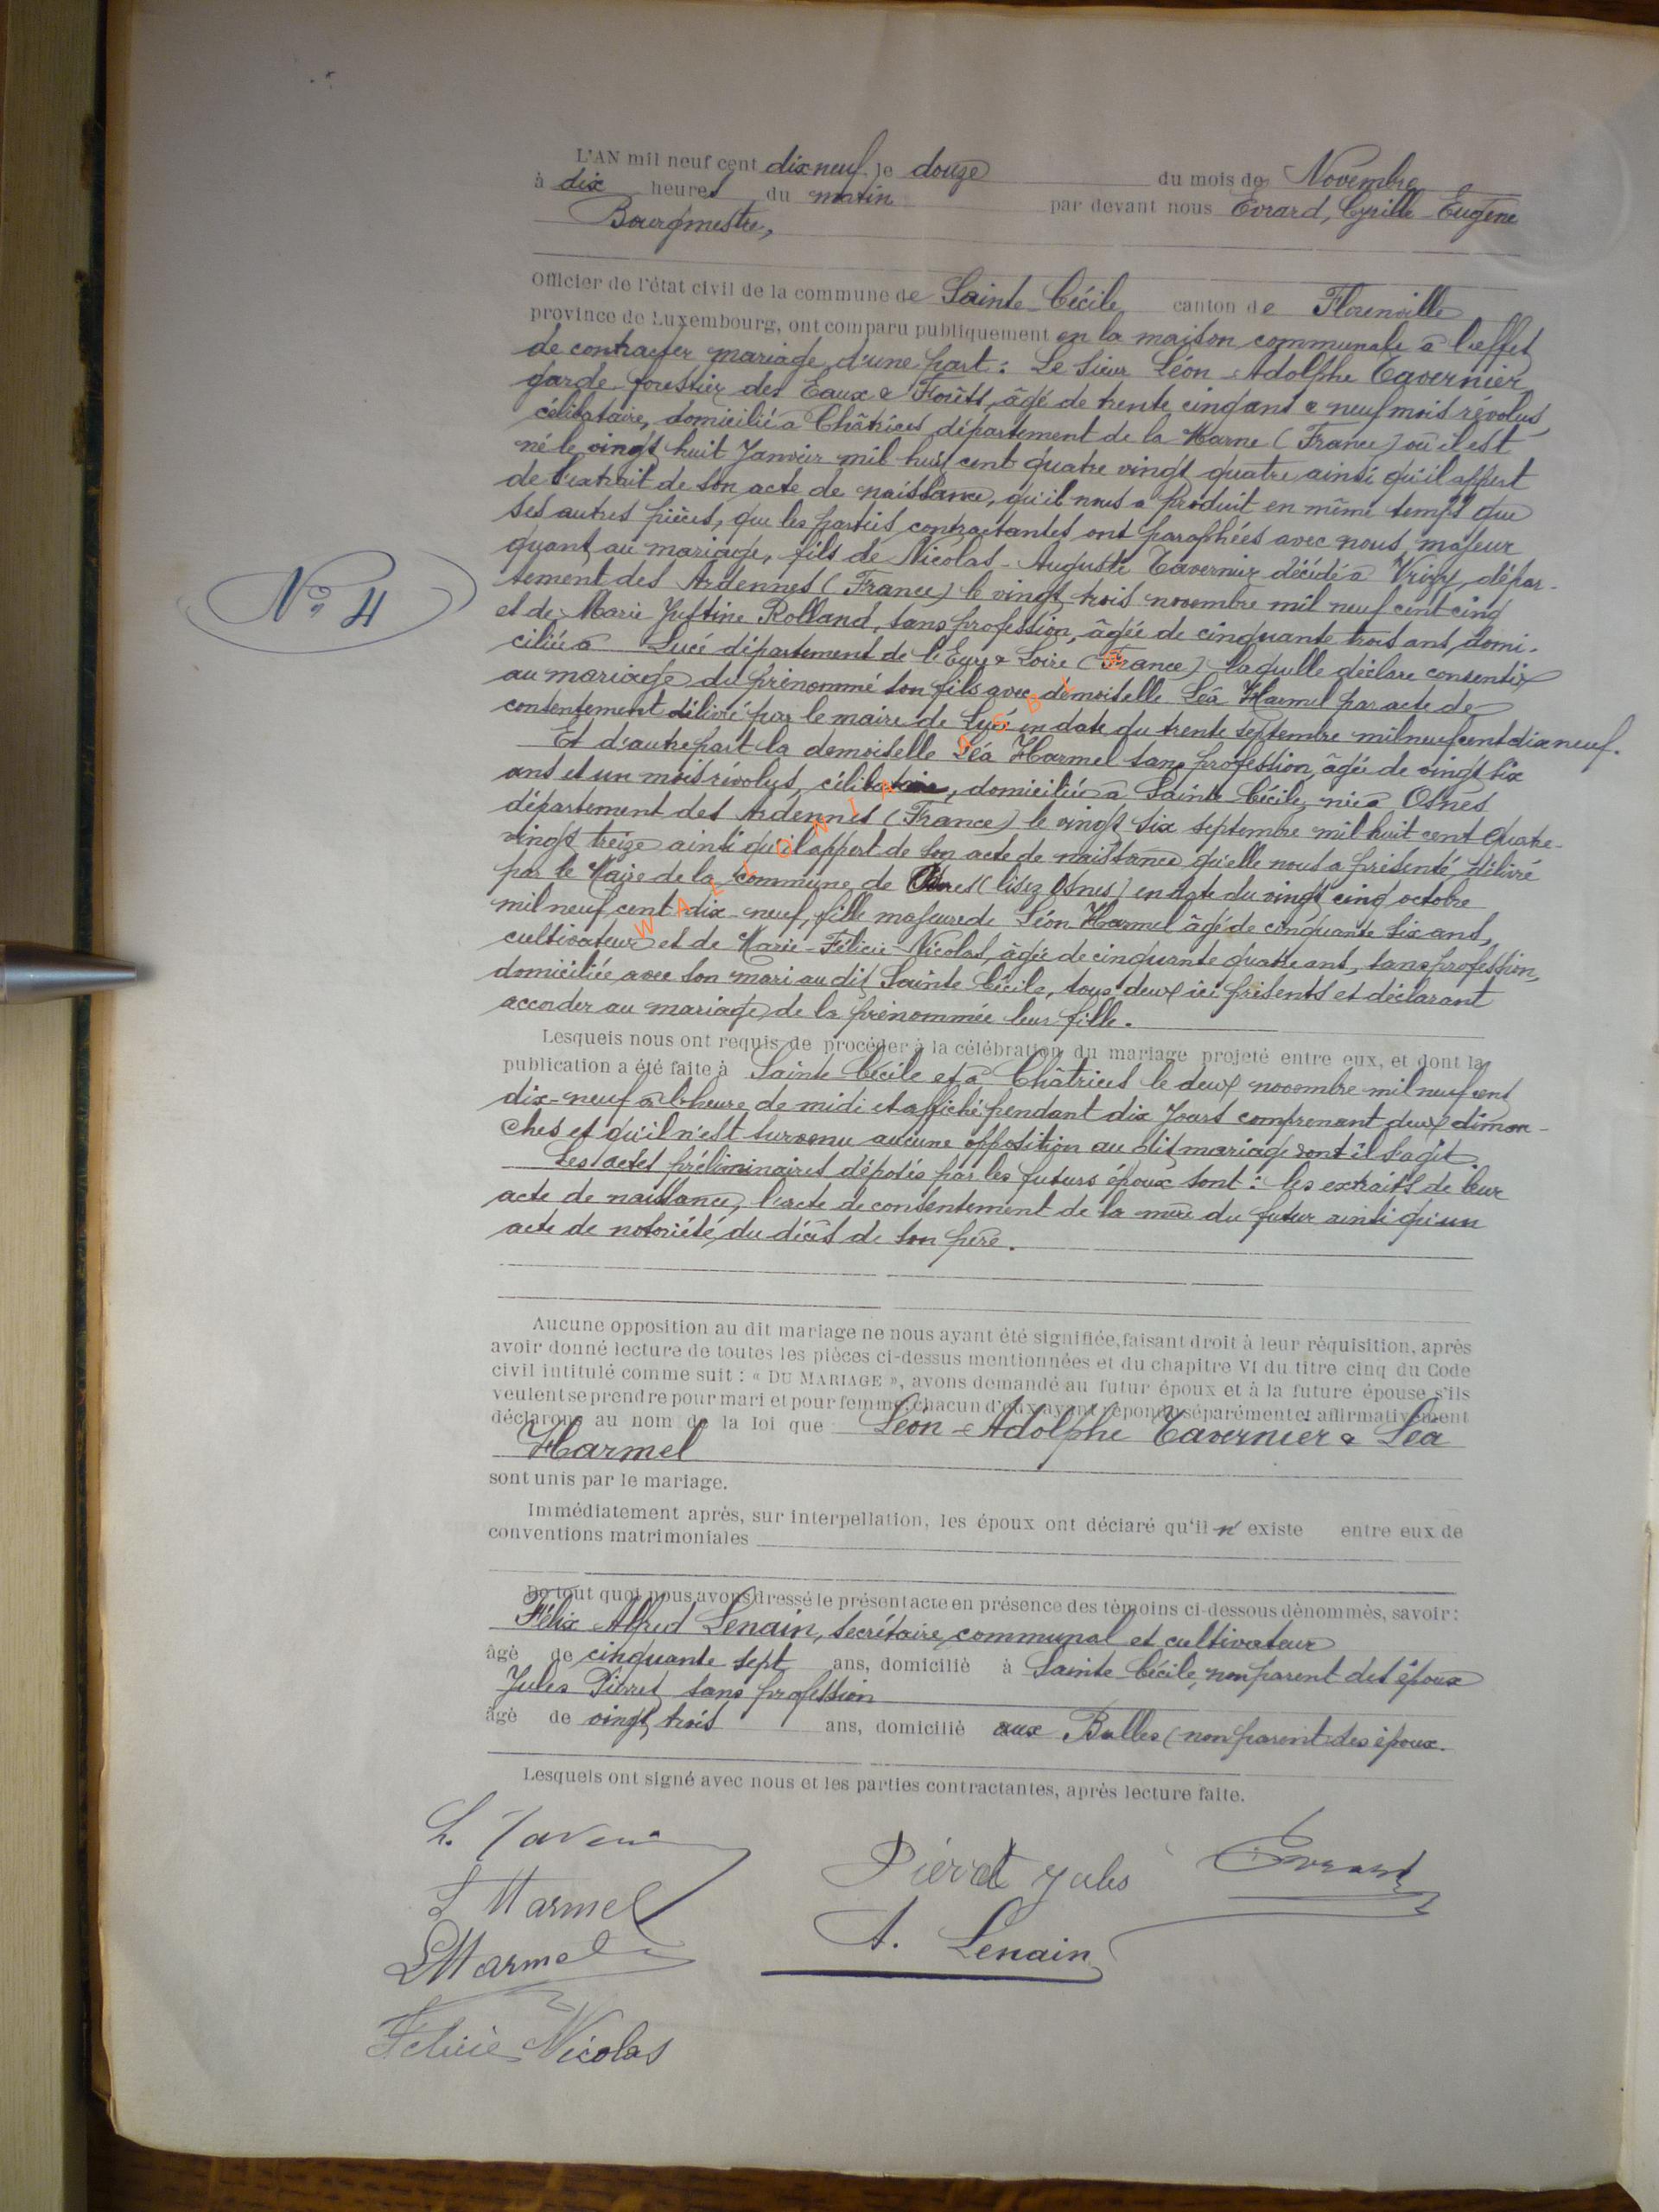 L'AN mil neuf cent dix neuf le douze du mois de Novembre
à dix heures du matin par devant nous Evrard, Cyrille-Eugène
Bourgmestre,
Officier de l'état civil de la commune de Sainte-Cécile canton de Florenville
province de Luxembourg, ont comparu publiquement en la maison communale à l'effet
de contracter mariage d'une part : Le Sieur Léon-Adolphe Tavernier
garde forestier des Eaux & Forêts, âgé de trente cinq ans & neuf mois révolus,
célibataire, domicilié à Châtrices département de la Marne (France) où il est
né le vingt huit Janvier mil huit cent quatre vingt quatre ainsi qu'il appert
de l'extrait de son acte de naissance, qu'il nous a produit en même temps que
ses autres pièces, que les parties contractantes ont paraphées avec nous, majeur
quant au mariage, fils de Nicolas-Auguste Tavernier décédé à Vrizy, dépar-
tement des Ardennes (France) le vingt trois novembre mil neuf cent cinq
et de Marie Justine Rolland, sans profession, âgée de cinquante trois ans, domi-
ciliée à Lucé département de l'Eure & Loire (France) laquelle déclare consentir
au mariage du prénommé son fils avec demoiselle Léa Harmel par acte de
consentement délivré par le maire de Lucé en date du trente septembre mil neuf cent dix neuf.
Et d'autre part la demoiselle Léa Harmel sans profession, âgée de vingt six
ans et un mois révolus, célibataire, domiciliée à Sainte-Cécile, née à Osnes
département des Ardennes (France) le vingt six septembre mil huit cent quatre-
vingt treize ainsi qu'il appert de son acte de naissance qu'elle nous a présenté, délivré
par le Maire de la commune de (lisez Osnes) en date du vingt cinq octobre
mil neuf cent dix-neuf, fille majeure de Léon Harmel âgé de cinquante six ans,
cultivateur et de Marie-Félicie-Nicolas, âgée de cinquante quatre ans, sans profession,
domiciliée avec son mari au dit Sainte Cécile, tous deux ici présents et déclarant
accorder au mariage de la prénommée leur fille.
Lesquels nous ont requis de procéder à la célébration du mariage projeté entre eux, et dont la
publication a été faite à Sainte-Cécile et à Châtrices le deux novembre mil neuf cent
dix-neuf à l'heure de midi et affiché pendant dix jours comprenant deux diman-
ches et qu'il n'est survenu aucune opposition au dit mariage dont il s'agit.
Les actes préliminaires déposés par les futurs époux sont : les extraits de leur
acte de naissance, l'acte de consentement de la mère du futur ainsi qu'un
acte de notoriété du décès de son père.
Aucune opposition au dit mariage ne nous ayant été signifiée, faisant droit à leur réquisition, après
avoir donné lecture de toutes les pièces ci-dessus mentionnées et du chapitre VI du titre cinq du Code
civil intitulé comme suit : « DU MARIAGE », avons demandé au futur époux et à la future épouse s'ils
veulent se prendre pour mari et pour femme, chacun d'eux ayant répondu séparément et affirmativement
déclarons au nom de la loi que Léon-Adolphe Tavernier & Léa
Harmel
sont unis par le mariage.
Immédiatement après, sur interpellation, les époux ont déclaré qu'il n'existe entre eux de
conventions matrimoniales
De tout quoi nous avons dressé le présent acte en présence des témoins ci-dessous dénommés, savoir :
Félix Alfred Lenain, secrétaire communal et cultivateur
âgé de cinquante sept ans, domicilié à Sainte-Cécile, non parent des époux
Jules Pierret sans profession
âgé de vingt trois ans, domicilié aux Bulles (non parent des époux.
Lesquels ont signé avec nous et les parties contractantes, après lecture faite.
N° 4
WALLONIA
L. Tavernier
L Harmel
L Harmel
Félicie Nicolas
Pierret Jules
A. Lenain
Evrard